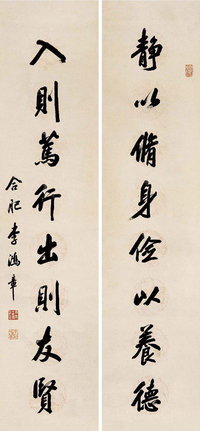 静以脩身儉以養德
入則篤行出則友賢
合肥李鴻章